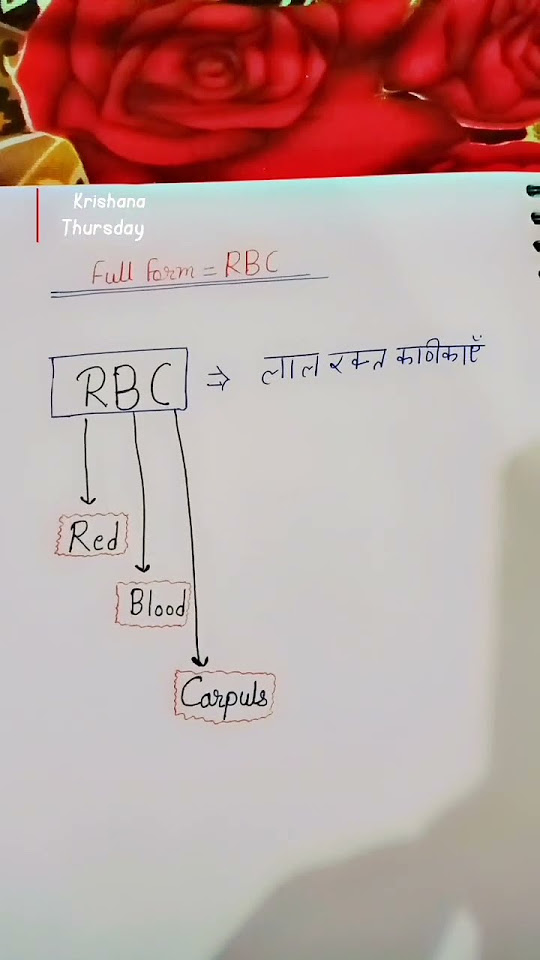 Krishana
Thursday
Full form = RBC
RBC ⇒ लाल रक्त काणीकाएँ
Red
Blood
Carpuls